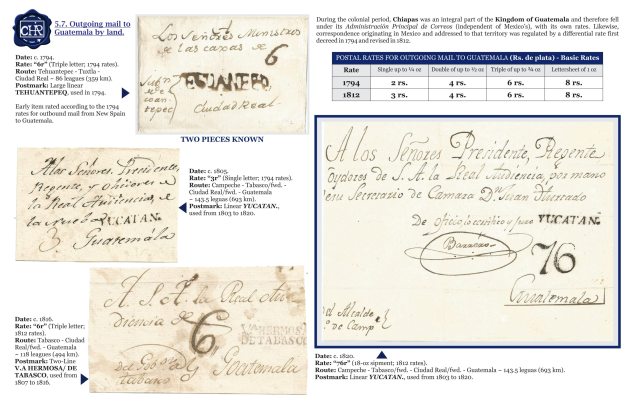 CHR
5.7. Outgoing mail to
Guatemala by land.
Date: c. 1794.
Rate: "6r" (Triple letter; 1794 rates).
Route: Tehuantepec - Tuxtla -
Ciudad Real ~ 86 leagues (359 km).
Postmark: Large linear
TEHUANTEPEQ, used in 1794.
Early item rated according to the 1794
rates for outbound mail from New Spain
to Guatemala.
Los Señores Ministros
de las caxas de
6
Ciudad Real
During the colonial period, Chiapas was an integral part of the Kingdom of Guatemala and therefore fell
under its Administración Principal de Correos (independent of Mexico's), with its own rates. Likewise,
correspondence originating in Mexico and addressed to that territory was regulated by a differential rate first
decreed in 1794 and revised in 1812.
POSTAL RATES FOR OUTGOING MAIL TO GUATEMALA (Rs. de plata) - Basic Rates
Rate Single up to ¼ oz Double of up to ½ oz Triple of up to ¾ oz Lettersheet of 1 oz
1794 2 rs. 4 rs. 6 rs. 8 rs.
1812 3 rs. 4 rs. 6 rs. 8 rs.
TWO PIECES KNOWN
Alos Señores Presidente,
Regente, y Ohidores de
la Real Audiencia, de
YUCATAN.
3 Guatemála
Date: c. 1805.
Rate: "3r" (Single letter; 1794 rates).
Route: Campeche - Tabasco/fwd. -
Ciudad Real/fwd. - Guatemala
~ 143.5 leguas (693 km).
Postmark: Linear YUCATAN.,
used from 1803 to 1820.
A los Señores Presidente, Regente
oydores de S. A. la Real Audiencia, por mano
Secretario de Camara Dn. Juan Hurtado
De oficio lo certifico y juro YUCATAN.
76
Guatemala
Date: c. 1816.
Rate: "6r" (Triple letter;
1812 rates).
Route: Tabasco - Ciudad
Real/fwd. - Guatemala
~ 118 leagues (494 km).
Postmark: Two-Line
V.A HERMOSA/ DE
TABASCO, used from
1807 to 1816.
A. S. A. la Real Au
diencia de
6
HERMOSA
DE TABASCO
tabasco Goatemala
Date: c. 1820.
Rate: "76r" (18-oz sipment; 1812 rates).
Route: Campeche - Tabasco/fwd. - Ciudad Real/fwd. - Guatemala ~ 143.5 leguas (693 km).
Postmark: Linear YUCATAN., used from 1803 to 1820.